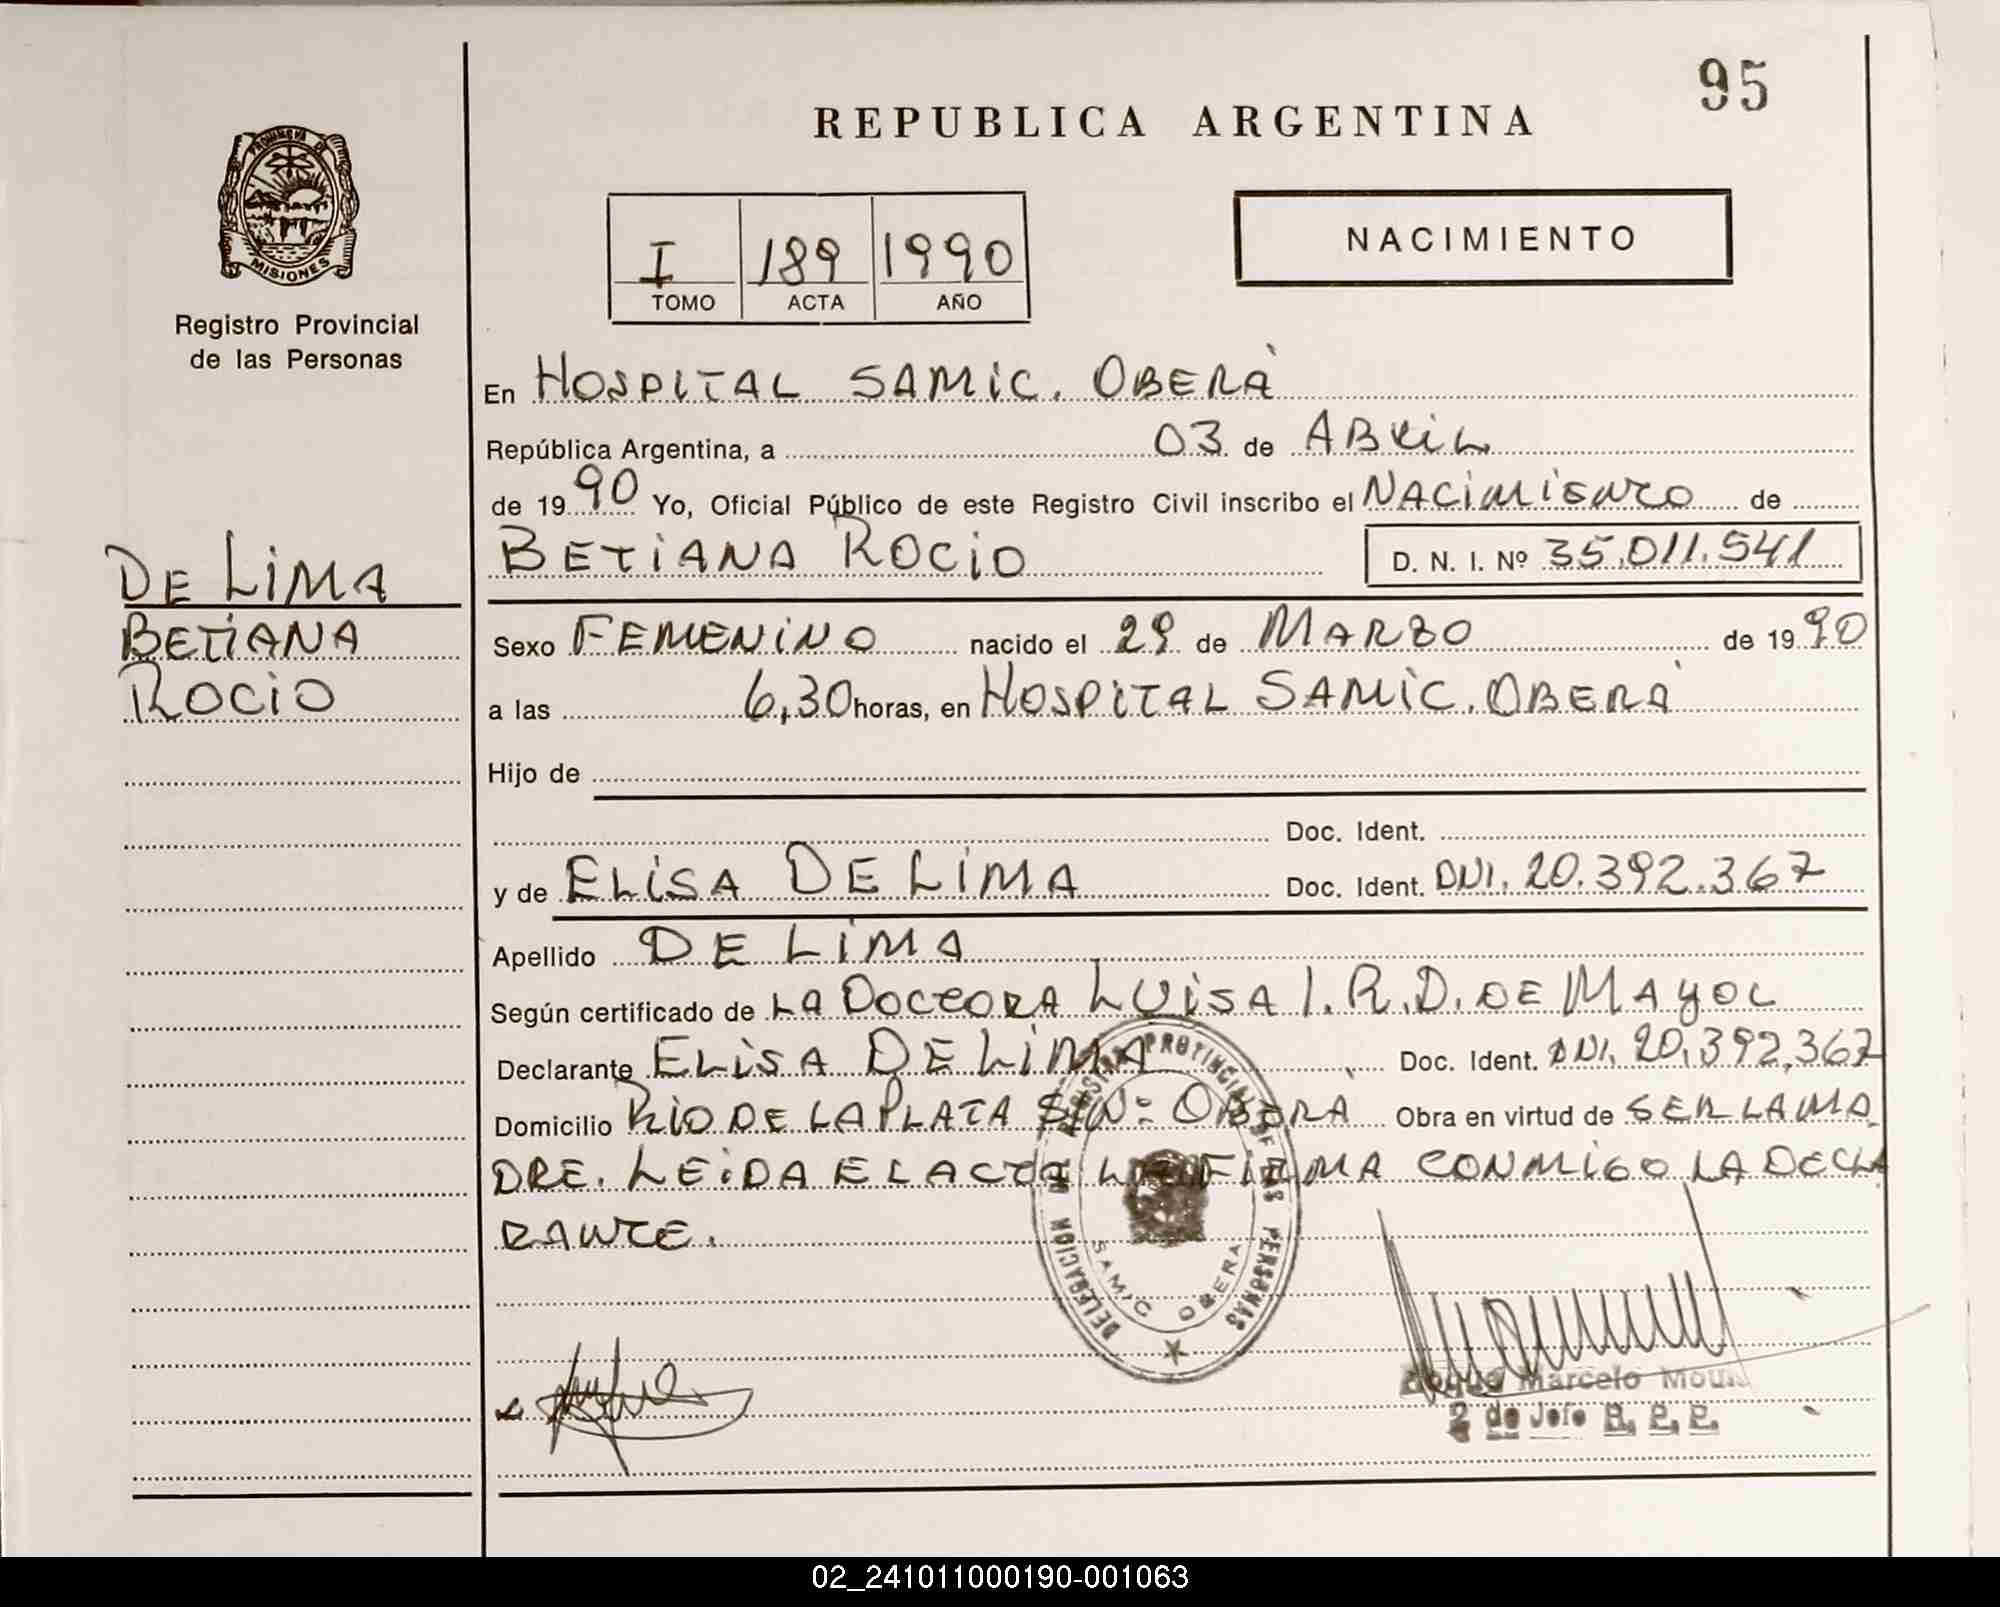 95
REPUBLICA ARGENTINA
PROVINCIA DE
MISIONES
Registro Provincial
de las Personas
I 189 1990
TOMO ACTA AÑO
NACIMIENTO
En HOSPITAL SAMIC. OBERÁ
República Argentina, a 03 de ABRIL
de 1990 Yo, Oficial Público de este Registro Civil inscribo el NACIMIENTO de
BETIANA ROCIO D. N. I. Nº 35.011.541
DE LIMA
BETIANA
ROCIO
Sexo FEMENINO nacido el 29 de MARZO de 1990
a las 6,30 horas, en HOSPITAL SAMIC. OBERÁ
Hijo de
Doc. Ident.
y de ELISA DE LIMA Doc. Ident. DNI. 20.392.367
Apellido DE LIMA
Según certificado de LA DOCTORA LUISA I. R. D. DE MAYOL
Declarante ELISA DE LIMA Doc. Ident. DNI. 20.392.367
Domicilio RIO DE LA PLATA S/Nº OBERA Obra en virtud de SER LA MA
DRE. LEIDA EL ACTA LA FIRMA CONMIGO LA DECLA
RANTE.
DELEGACION REGISTRO PROVINCIAL DE LAS PERSONAS
SAMIC OBERA
Marcelo
2 do Jefe R. P. P.
02_241011000190-001063